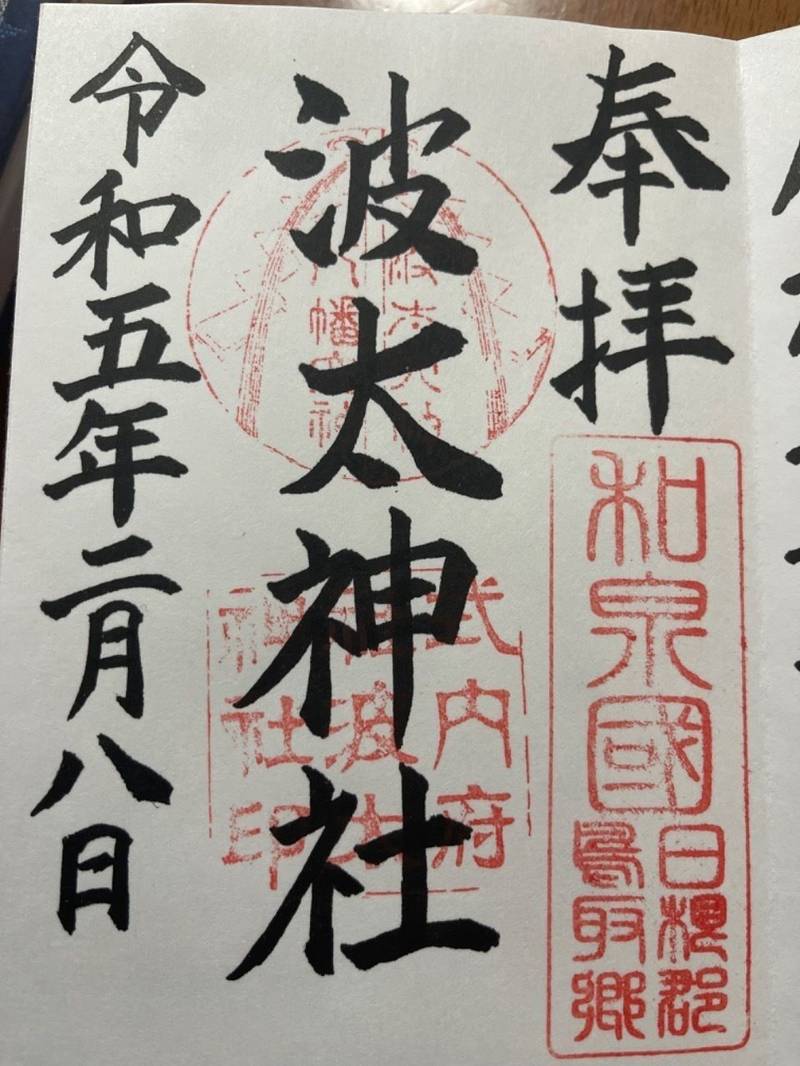 奉拝
和泉國
日根郡
鳥取郷
波太神社
式内府
社波太
神社印
令和五年二月八日